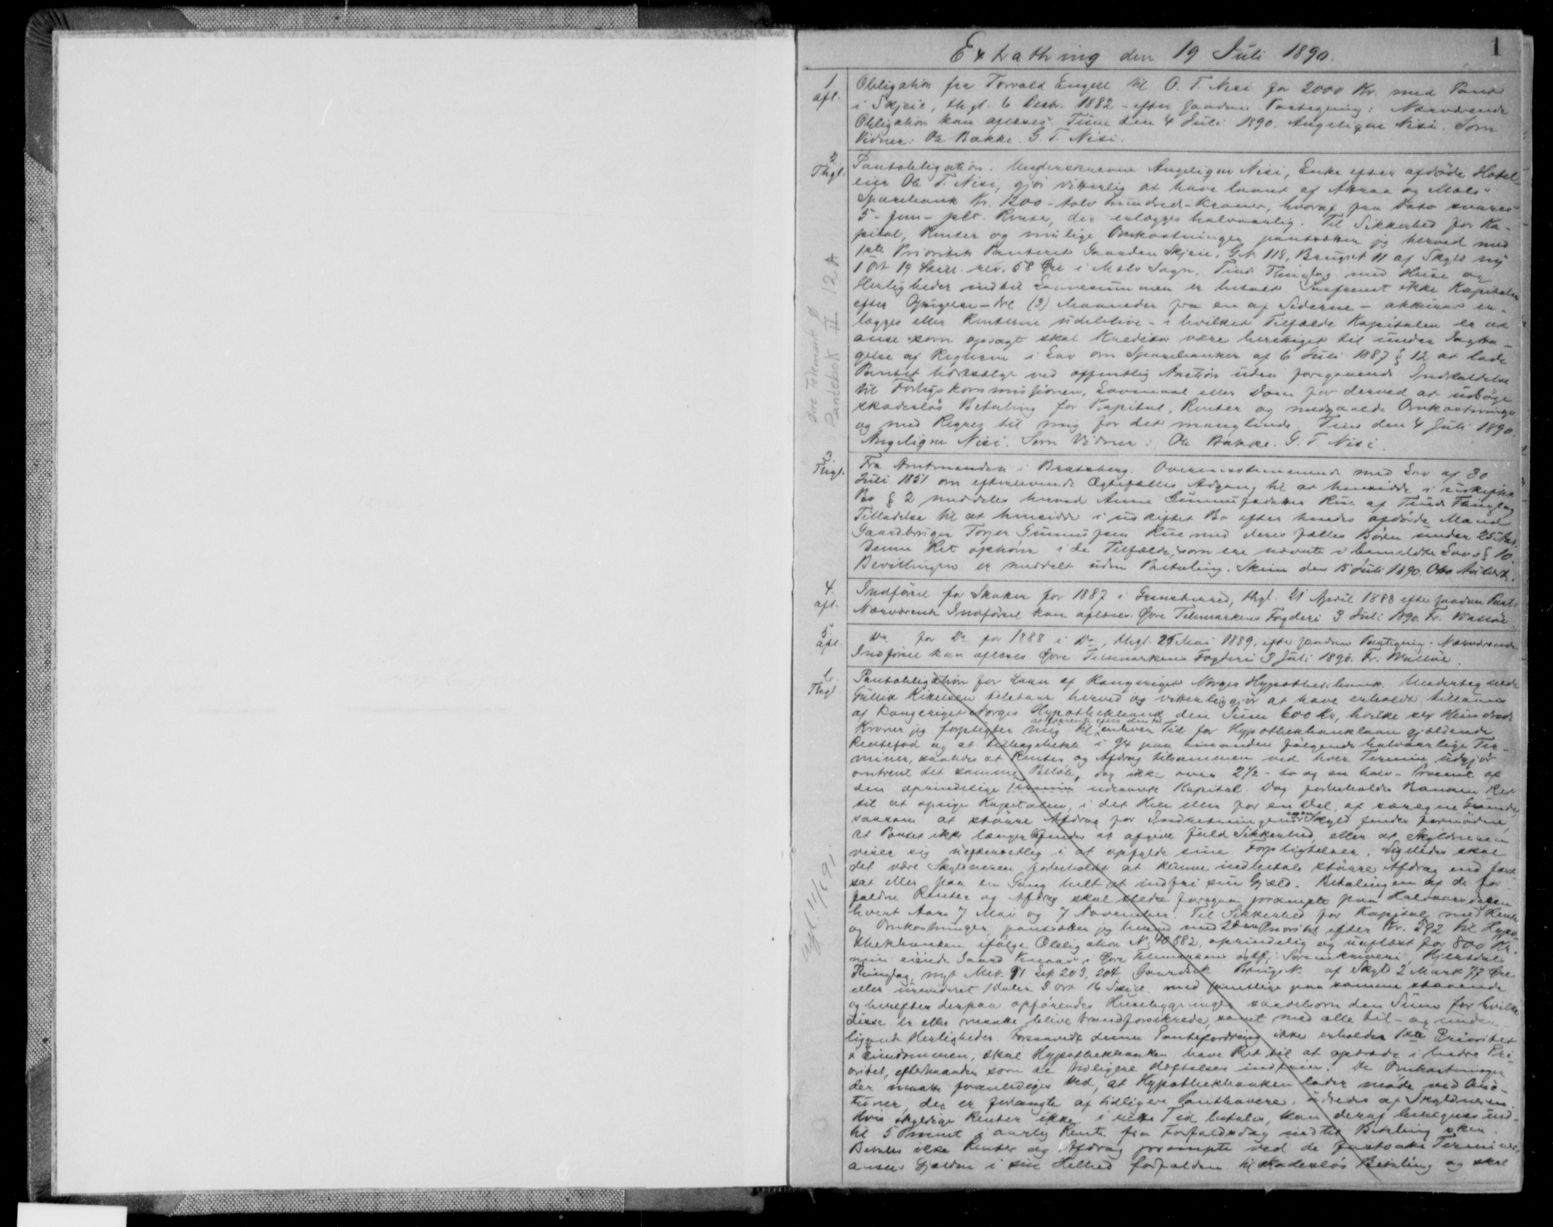 1
Extrathing den 19 Juli 1890.
1. afl.
Obligation fra Torvald Engell til O. T. Nisi for 2000 Kr. med Pant
i Skjeie, thgl. 6 Decb. 1882 - efter saadan Paategning: Nærværende
Obligation kan aflæses. Tinn den 4 Juli 1890. Angelique Nisi. Som
Vidner: Ole Bakke. G. T. Nisi.
2. Thgl.
Pantobligation. Undertegnede Angelique Nisi, Enke efter afdøde Hotel-
eier Ole T. Nisi, gjør vitterlig at have laant af Atraa og Mæls
Sparebank Kr. 1200 - tolv hundrede - Kroner, hvoraf fra Dato svares
5 - fem - pCt. Rente, der erlægges halvaarlig. Til Sikkerhed for Ka-
pital, Renter og mulige Omkostninger pantsætter jeg herved med
1ste Prioritets Panteret Gaarden Skjeie, G.No 118, Brugsnt 11 af Skyld ny
1 Ort 19 Skill. rev. 58 Øre i Mæls Sogn, Tinn Thinglag med Huse og
Herligheder indtil Laanesummen er betalt. Saafremt ikke Kapitalen
efter Opsigelse - to (2) Maaneder fra en af Siderne - akkurat er-
lægges eller Renterne udeblive - i hvilket Tilfælde Kapitalen er at
anse som opsagt skal Kreditor være berettiget til under Iagtta-
gelse af Reglerne i Lov om Sparebanker af 6 Juli 1887 § 12 at lade
Pantet bortsælge ved offentlig Auktion uden foregaaende Indkaldelse
til Forligskommissionen, Lovmaal eller Dom for derved at udsøge
skadesløs Betaling for Kapital, Renter og medgaaede Omkostninger
og med Regres til mig for det manglende. Tinn den 4 Juli 1890.
Angelique Nisi. Som Vidner: Ole Bakke. G. T. Nisi.
Øvre Telemark Ø
Pantebok II 12 A
3. Thgl.
Fra Amtmanden i Bratsberg. Overensstemmende med Lov af 30
Juli 1851 om efterlevende Ægtefælles Adgang til at hensidde i uskiftet
Bo § 2 meddeles herved Anne Gunnufsdatter Rue af Tinds Thinglag
Tilladelse til at hensidde i uskiftet Bo efter hendes afdøde Mand
Gaardbruger Torjer Gunnufsen Rue med deres fælles Børn under 25 Aar.
Denne Ret ophører i de Tilfælde, som ere nævnte i bemeldte Lovs § 10.
Bevillingen er meddelt uden Betaling. Skien den 15 Juli 1890.
4. afl.
Indførsel for Skatter for 1887 i Grunstverud, thgl. 21 April 1888 efter saadan Paat.:
Nærværende Indførsel kan aflæses. Øvre Telemarkens Fogderi 3 Juli 1890. Fr. Walløe.
5. afl.
Do for Do for 1888 i Do thgl. 25 Mai 1889, efter saadan Paategning: Nærværende
Indførsel kan aflæses. Øvre Telemarkens Fogderi 3 Juli 1890. Fr. Walløe.
6. Thgl.
Pantobligation for Laan af Kongeriget Norges Hypothekbank. Undertegnede
Gullik tilstaar herved og vitterliggjør at have erholdt tillaans
af Kongeriget Norges Hypothekbank den Sum 600 Kr, hvilke sex Hundrede
Kroner jeg forpligter mig til at forrente efter den til enhver Tid for Hypothekbanklaan gjældende
Rentefod og at tilbagebetale i 94 paa hinanden følgende halvaarlige Ter-
miner, saaledes at Renter og Afdrag tilsammen ved hver Termin udgjør
omtrent det samme Beløb, dog ikke over 2½ - to og en halv - Procent af
den oprindelige udlaante Kapital. Dog forbeholdes Banken Ret
til at opsige Kapitalen, i det Hele eller for en Del, af saregne Grunde,
saasom at større Afdrag for Indskrænkning Skyld findes fornødne,
at Pantet ikke længer befindes at afgive fuld Sikkerhed, eller at Skyldneren
viser sig uefterrettelig i at opfylde sine Forpligtelser. Ligeledes skal
det være Skyldneren forbeholdt at kunne indbetale større Afdrag end fast-
sat eller paa en Gang helt at indfri sin Gjæld. Betalingen af de for-
faldne Renter og Afdrag skal stedse foregaa prompte paa
hvert Aars 7 Mai og 7 November. Til Sikkerhed for Kapital med Renter
og Omkostninger pantsætter jeg herved med 2den Prioritet efter Kr. 592 til Hypo-
thekbanken ifølge Obligation No 40,882, oprindelig og uaflæst for 800 Kr.
min eiende Gaard i Øvre Telemarkens Sorenskriveri Hjertdal
Thinglag, nyt Mat. 91 Lsp 203, 204 Gaardsk. Brugsk. af Skyld 2 Mark 77 Øre
eller urevideret 1 Daler 3 Ort 16 Skill. med samtlige paa samme staaende
og herefter derpaa opførendes Husebygninger saavelsom den Sum for hvilken
disse er eller maatte blive brandforsikrede, samt med alle til- og under-
liggende Herligheder. Forsaavidt denne Pantefordring ikke erholder 1ste Prioritet
i Eiendommen, skal Hypothekbanken have Ret til at optræde i bedre Pri-
oritet, efterhaanden som de tidligere Heftelser indfries. De Omkostninger
der maatte foranlediges ved, at Hypothekbanken lader møde ved Auk-
tioner, der er forlangte af tidligere Panthavere, udredes af Skyldneren.
Hvis skyldige Renter ikke i rette Tid betales, skal deraf beregnes ind-
til 5 Procent i aarlig Rente fra Forfaldsdag indtil Betaling sker.
Betales ikke Renter og Afdrag prompte ved de fastsatte Terminer,
ansees Gjælden i sin Helhed forfalden til skadesløs Betaling og skal
afl. 11/6 91.